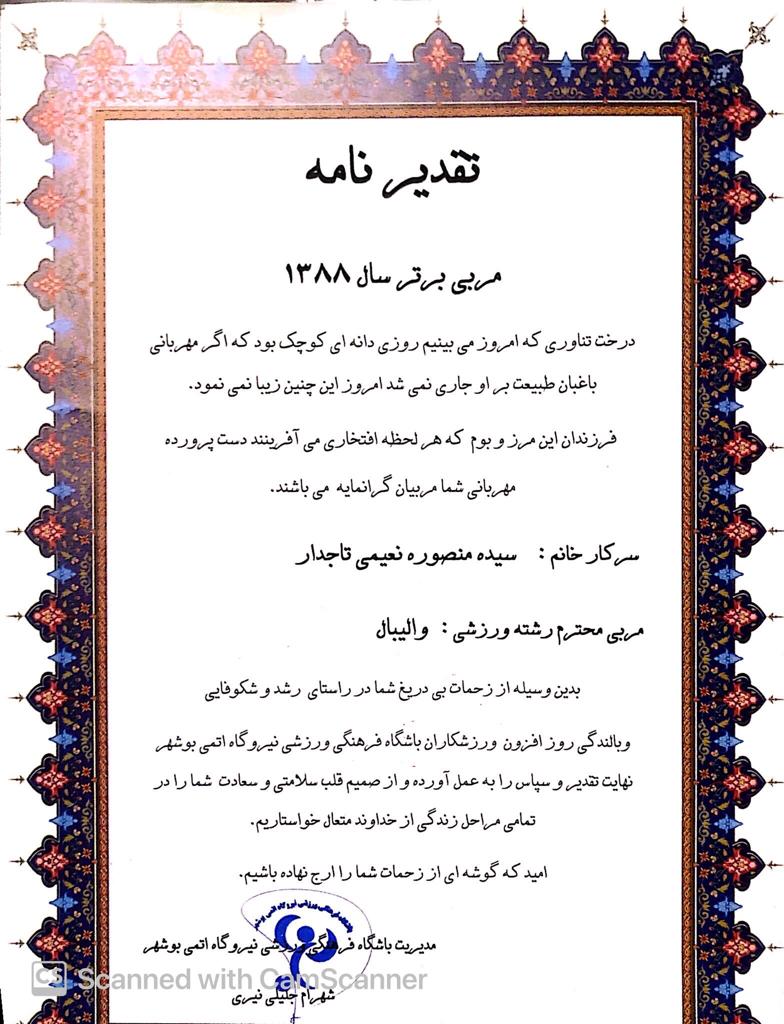 تقدیر نامه
مربی برتر سال ۱۳۸۸
درخت تناوری که امروز می بینیم روزی دانه ای کوچک بود که اگر مهربانی
باغبان طبیعت بر او جاری نمی شد امروز این چنین زیبا نمی نمود.
فرزندان این مرز و بوم که هر لحظه افتخاری می آفرینند دست پرورده
مهربانی شما مربیان گرانمایه می باشند.
سرکار خانم : سیده منصوره نعیمی تاجدار
مربی محترم رشته ورزشی : والیبال
بدین وسیله از زحمات بی دریغ شما در راستای رشد و شکوفایی
وبالندگی روز افزون ورزشکاران باشگاه فرهنگی ورزشی نیروگاه اتمی بوشهر
نهایت تقدیر و سپاس را به عمل آورده و از صمیم قلب سلامتی و سعادت شما را در
تمامی مراحل زندگی از خداوند متعال خواستاریم.
امید که گوشه ای از زحمات شما را ارج نهاده باشیم.
باشگاه فرهنگی ورزشی نیروگاه اتمی بوشهر
مدیریت باشگاه فرهنگی ورزشی نیروگاه اتمی بوشهر
CS Scanned with CamScanner
شهرام جلیلی نیری